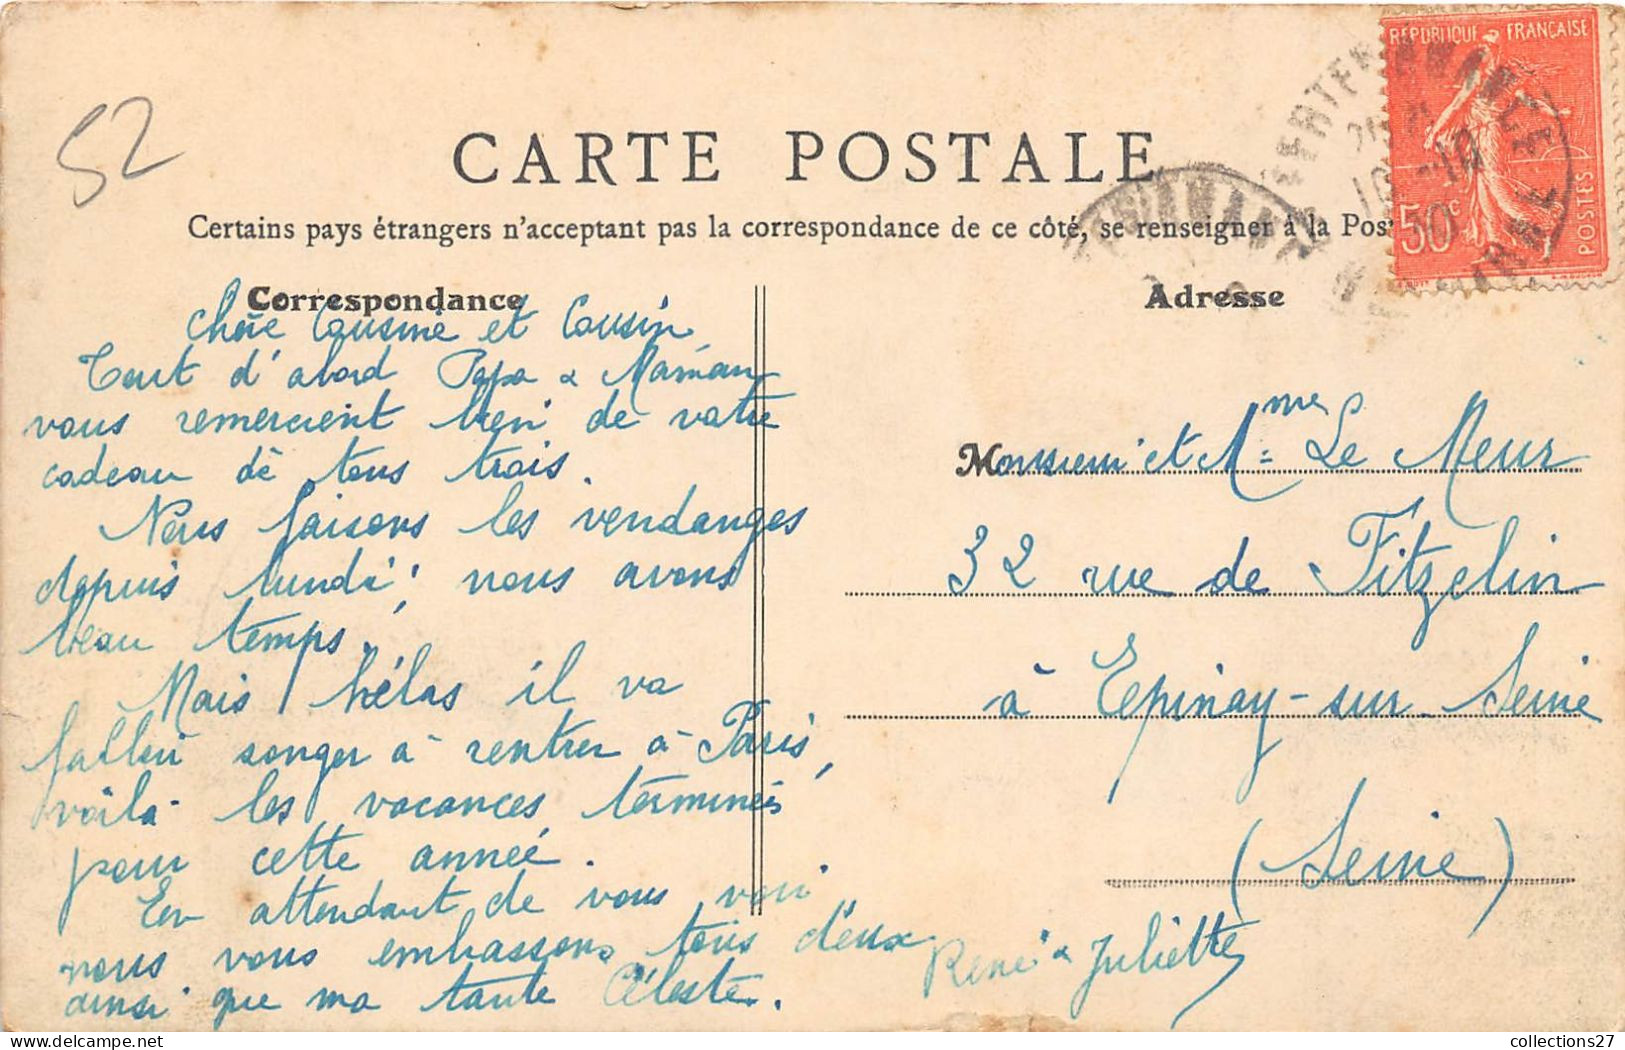 52
CARTE POSTALE
Certains pays étrangers n'acceptent pas la correspondance de ce côté, se renseigner à la Pos
REPUBLIQUE FRANÇAISE
50c
POSTES
Correspondance
Adresse
Chère Cousine et Cousin
Tout d'abord Papa & Maman
vous remercient bien de votre
cadeau de tous trois.
Nous faisons les vendanges
depuis lundi, nous avons
beau temps.
Mais hélas il va
falloir songer à rentrer à Paris,
voilà les vacances terminées
pour cette année.
En attendant de vous voir
nous vous embrassons tous deux
ainsi que ma tante Céleste.
René & Juliette
Monsieur et Mme Le Meur
32 rue de Fitzelin
à Epinay-sur-Seine
(Seine)
collections27